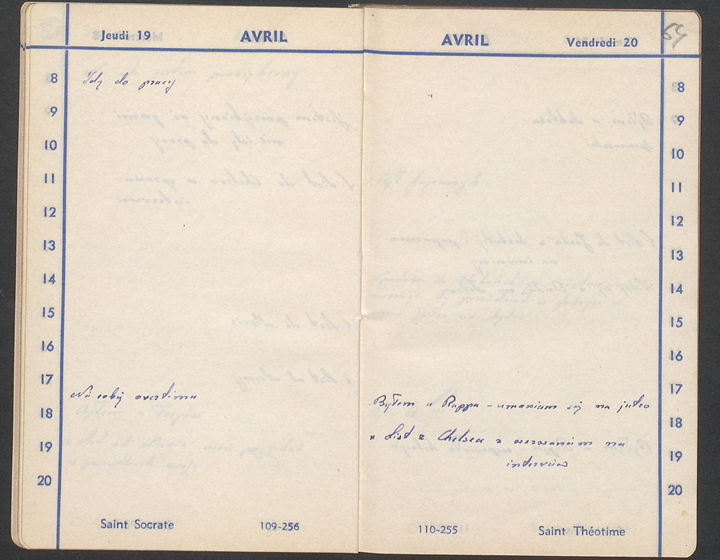 Jeudi 19 AVRIL
8 Idę do pracy
9
10
11
12
13
14
15
16
17 overtime
18
19
20
Saint Socrate 109-256
AVRIL Vendredi 20
8
9
10
11
12
13
14
15
16
17
Byłem u Rippa - umawiam się na jutro
18
x List z Chelsea z wezwaniem na
19
interview
20
110-255 Saint Théotime